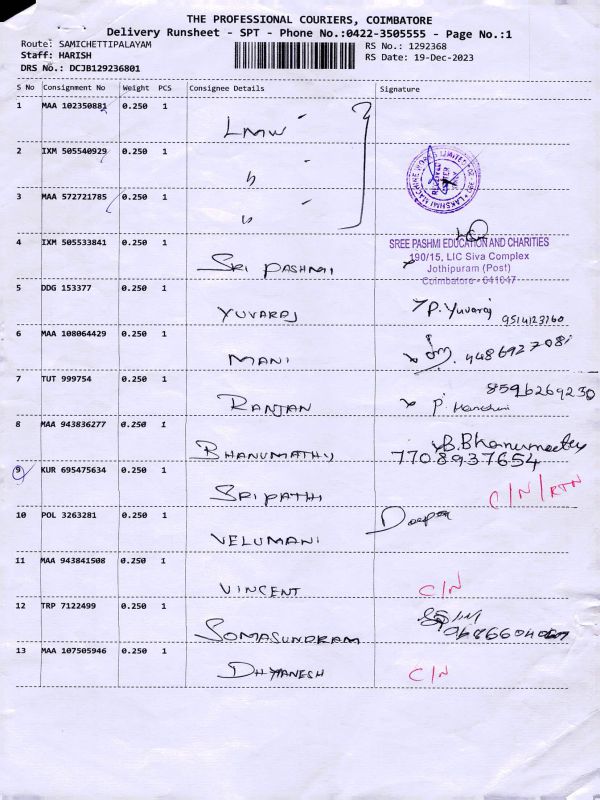 THE PROFESSIONAL COURIERS, COIMBATORE
Delivery Runsheet - SPT - Phone No.:0422-3505555 - Page No.:1
Route: SAMICHETTIPALAYAM
Staff: HARISH
DRS No.: DCJB129236801
RS No.: 1292368
RS Date: 19-Dec-2023
S No Consignment No Weight PCS Consignee Details Signature
1 MAA 102350881 0.250 1 LMW "
2 IXM 505540929 0.250 1 "
3 MAA 572721785 0.250 1 "
4 IXM 505533841 0.250 1 SRI PASHMI
SREE PASHMI EDUCATION AND CHARITIES
190/15, LIC Siva Complex
Jothipuram (Post)
Coimbatore - 641047
5 DDG 153377 0.250 1 YUVARAJ P. Yuvaraj 9514123760
6 MAA 108064429 0.250 1 MANI 4486927081
7 TUT 999754 0.250 1 RANJAN 8596269230
8 MAA 943836277 0.250 1 BHANUMATHY 7708937654
9 KUR 695475634 0.250 1 SRIPATHI C/N/RTN
10 POL 3263281 0.250 1 VELUMANI Deepa
11 MAA 943841508 0.250 1 VINCENT C/N
12 TRP 7122499 0.250 1 SOMASUNDRAM
13 MAA 107505946 0.250 1 DHYANESH C/N